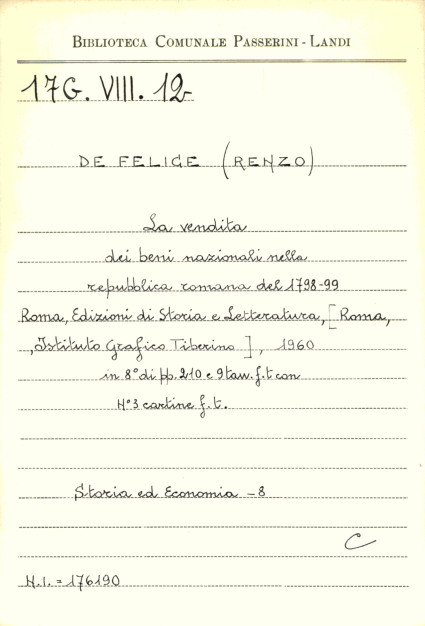 BIBLIOTECA COMUNALE PASSERINI - LANDI
17G. VIII. 12
DE FELICE (RENZO)
La vendita
dei beni nazionali nella
repubblica romana del 1798-99
Roma, Edizioni di Storia e Letteratura, [Roma,
, Istituto Grafico Tiberino ], 1960
in 8° di pp. 210 e 9 tav. f.t con
N° 3 cartine f.t.
Storia ed Economia - 8
C
N.I. = 176190